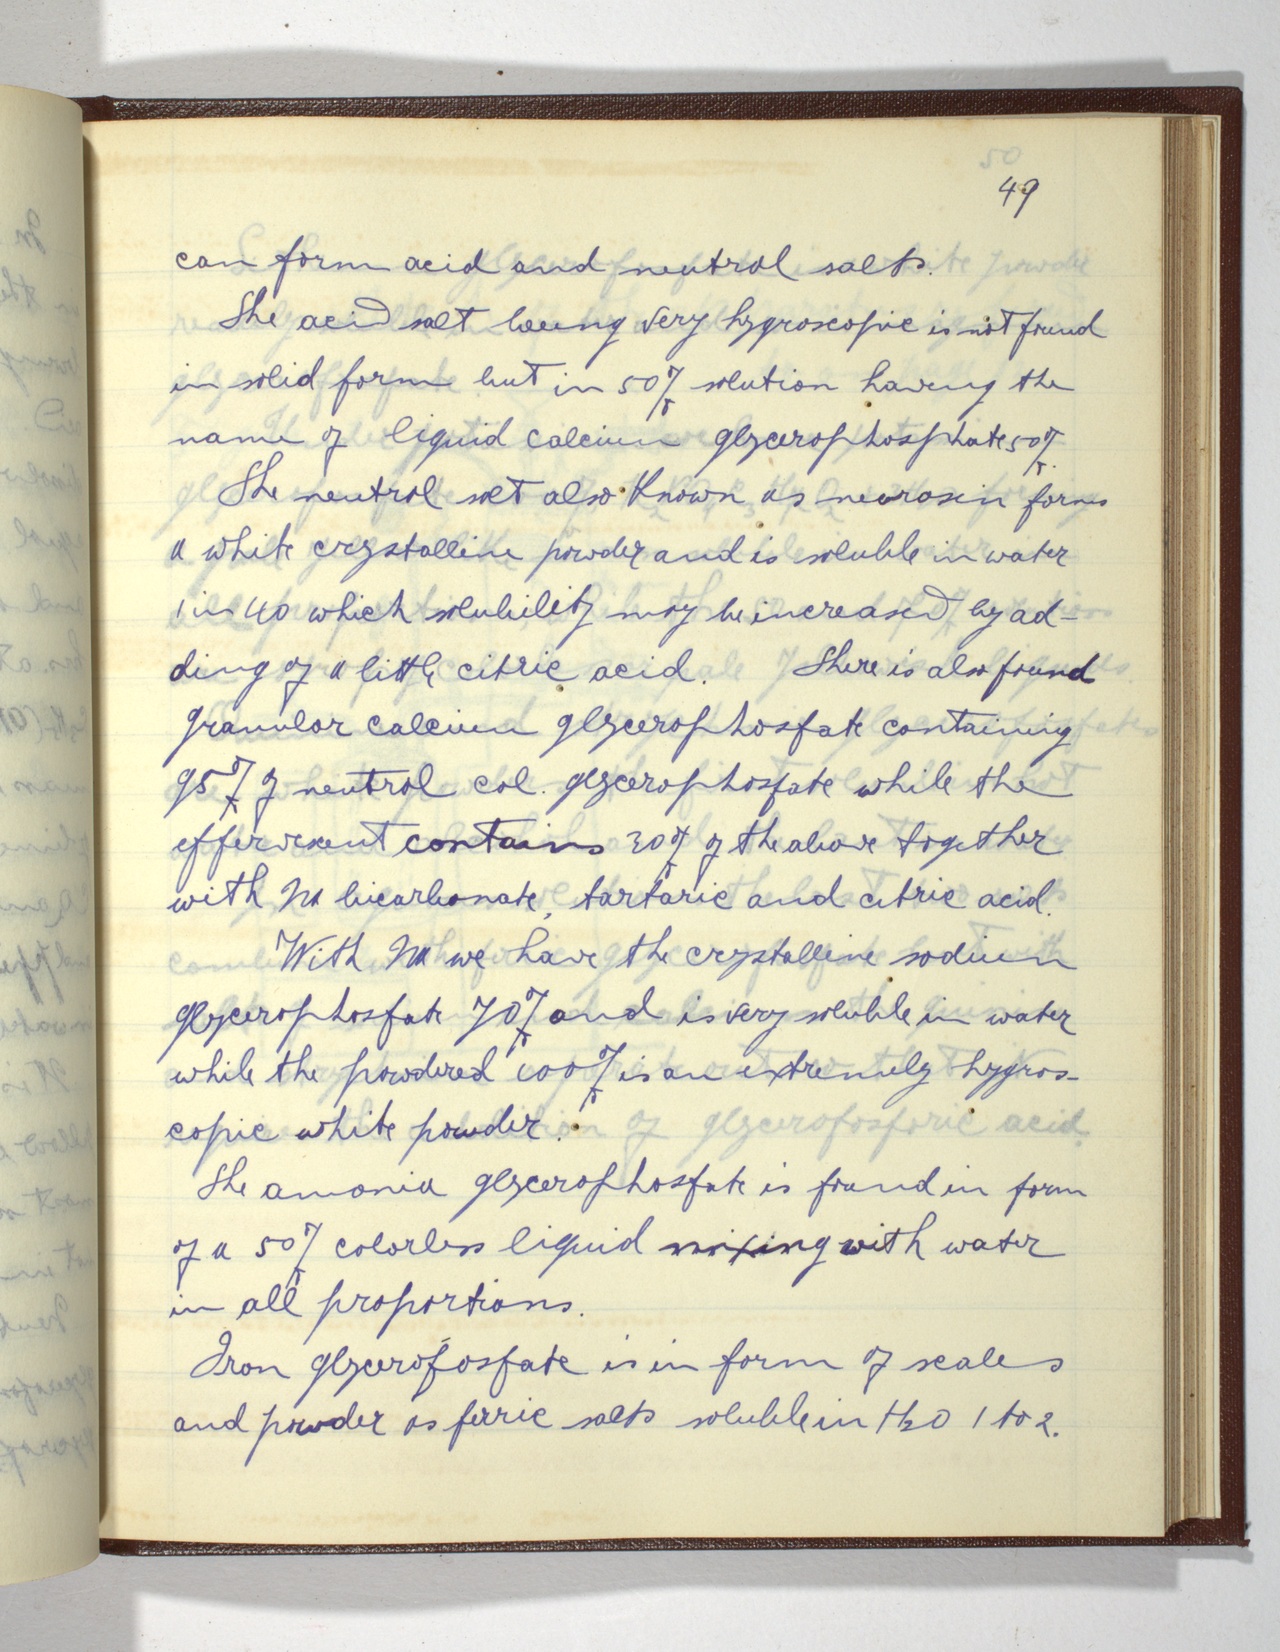 50
49
can form acid and neutral salts.
The acid salt being very hygroscopic is not found
in solid form but in 50% solution having the
name of liquid calcium glycerophosphate 50%.
The neutral salt also known as neurosin forms
a white crystalline powder and is soluble in water
1 in 40 which solubility may be increased by ad-
ding of a little citric acid. There is also found
granular calcium glycerophosfate containing
95% of neutral cal. glycerophosfate while the
effervescent contains 30% of the above together
with Na bicarbonate, tartaric and citric acid.
With Na we have the crystalline sodium
glycerophosfate 70% and is very soluble in water
while the powdered 100% is an extremely hygros-
copic white powder.
The amonia glycerophosfate is found in form
of a 50% colorless liquid mixing with water
in all proportions.
Iron glycerofosfate is in form of scales
and powder as ferric salts soluble in H2O 1 to 2.